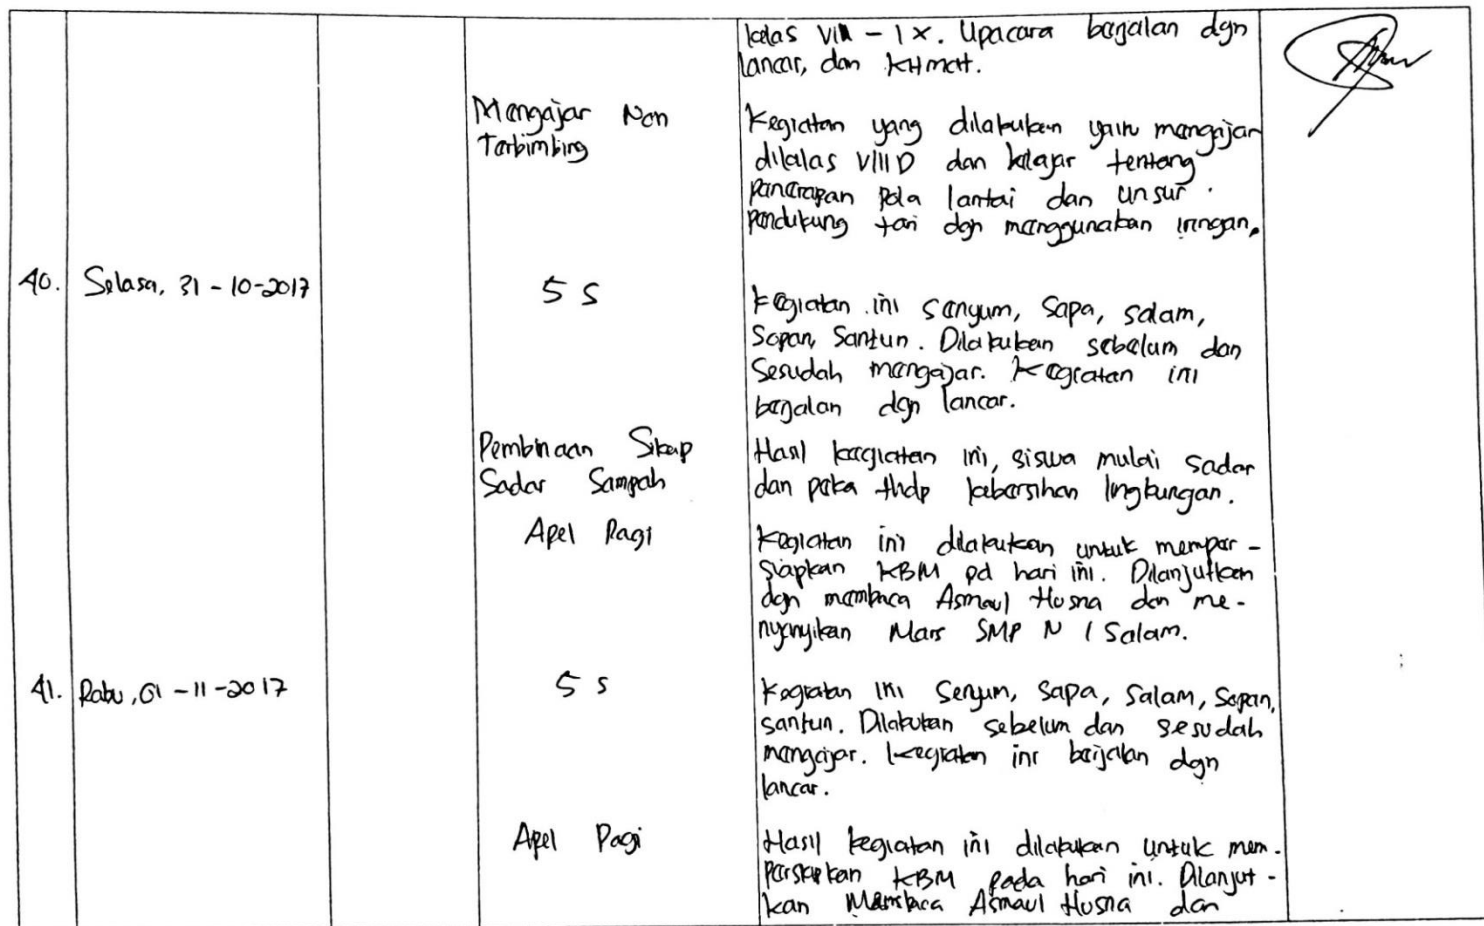 kelas VIII - IX. Upacara berjalan dgn
lancar, dan KHmat.
Mengajar Non
Terbimbing
Kegiatan yang dilakukan yaitu mengajar
dikelas VIII D dan belajar tentang
penerapan pola lantai dan unsur
pendukung tari dgn menggunakan iringan.
40. Selasa, 31-10-2017
5 S
Kegiatan ini senyum, sapa, salam,
sopan, santun. Dilakukan sebelum dan
sesudah mengajar. Kegiatan ini
berjalan dgn lancar.
Pembinaan Sikap
Sadar Sampah
Hasil kegiatan ini, siswa mulai sadar
dan peka thdp kebersihan lingkungan.
Apel Pagi
Kegiatan ini dilakukan untuk memper-
siapkan KBM pd hari ini. Dilanjutkan
dgn membaca Asmaul Husna dan me-
nyanyikan Mars SMP N 1 Salam.
41. Rabu, 01-11-2017
5 s
Kegiatan ini senyum, sapa, salam, sopan,
santun. Dilakukan sebelum dan sesudah
mengajar. Kegiatan ini berjalan dgn
lancar.
Apel Pagi
Hasil kegiatan ini dilakukan untuk mem-
persiapkan KBM pada hari ini. Dilanjut-
kan Membaca Asmaul Husna dan